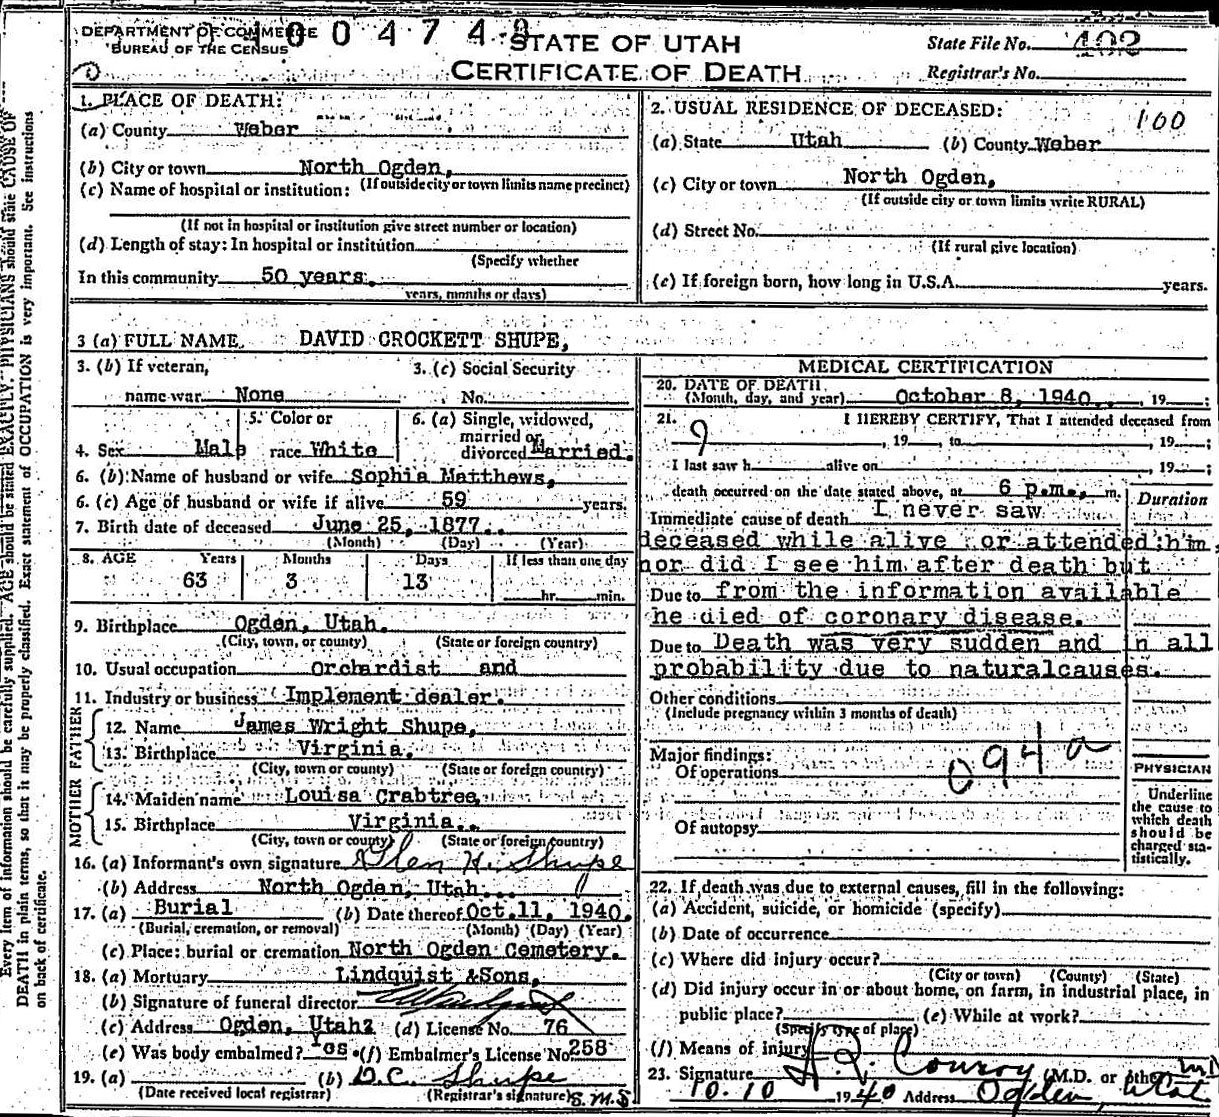 DEPARTMENT OF COMMERCE
BUREAU OF THE CENSUS
0 0 4 7 4
STATE OF UTAH
CERTIFICATE OF DEATH
State File No. 402
Registrar's No.
1. PLACE OF DEATH:
(a) County Weber
(b) City or town North Ogden,
(If outside city or town limits name precinct)
(c) Name of hospital or institution:
(If not in hospital or institution give street number or location)
(d) Length of stay: In hospital or institution
(Specify whether
In this community 50 years.
years, months or days)
2. USUAL RESIDENCE OF DECEASED:
100
(a) State Utah (b) County Weber
(c) City or town North Ogden,
(If outside city or town limits write RURAL)
(d) Street No.
(If rural give location)
(e) If foreign born, how long in U.S.A. years.
3 (a) FULL NAME DAVID CROCKETT SHUPE,
3. (b) If veteran, name war None
3. (c) Social Security No.
4. Sex Male
5. Color or race White
6. (a) Single, widowed, married or divorced Married.
6. (b) Name of husband or wife Sophia Matthews,
6. (c) Age of husband or wife if alive 59 years.
7. Birth date of deceased June 25, 1877.
(Month) (Day) (Year)
8. AGE Years Months Days If less than one day
63 3 13 hr. min.
9. Birthplace Ogden, Utah.
(City, town, or county) (State or foreign country)
10. Usual occupation Orchardist and
11. Industry or business Implement dealer.
FATHER
12. Name James Wright Shupe,
13. Birthplace Virginia.
(City, town or county) (State or foreign country)
MOTHER
14. Maiden name Louisa Crabtree,
15. Birthplace Virginia.
(City, town or county) (State or foreign country)
16. (a) Informant's own signature Glen H. Shupe
(b) Address North Ogden, Utah.
17. (a) Burial (b) Date thereof Oct.11, 1940.
(Burial, cremation, or removal) (Month) (Day) (Year)
(c) Place: burial or cremation North Ogden Cemetery.
18. (a) Mortuary Lindquist &Sons,
(b) Signature of funeral director
(c) Address Ogden, Utah2 (d) License No. 76
(e) Was body embalmed? Yes. (f) Embalmer's License No. 258
19. (a) (b) D.C. Shupe
(Date received local registrar) (Registrar's signature) S.M.S
MEDICAL CERTIFICATION
20. DATE OF DEATH
(Month, day, and year) October 8, 1940. , 19 ;
21. I HEREBY CERTIFY, That I attended deceased from
9 , 19 , to , 19 ;
I last saw h alive on , 19 ;
death occurred on the date stated above, at 6 p.m., m.
Duration
Immediate cause of death I never saw
deceased while alive or attended him,
nor did I see him after death but
Due to from the information available
he died of coronary disease.
Due to Death was very sudden and in all
probability due to naturalcauses.
Other conditions
(Include pregnancy within 3 months of death)
Major findings:
Of operations
094a
Of autopsy
PHYSICIAN
Underline
the cause to
which death
should be
charged sta-
tistically.
22. If death was due to external causes, fill in the following:
(a) Accident, suicide, or homicide (specify)
(b) Date of occurrence
(c) Where did injury occur?
(City or town) (County) (State)
(d) Did injury occur in or about home, on farm, in industrial place, in
public place? (e) While at work?
(Specify type of place)
(f) Means of injury
23. Signature Conroy (M.D. or other) MD
10-10 1940 Address Ogden, Utah
Every item of information should be carefully supplied. AGE should be stated EXACTLY. PHYSICIANS should state CAUSE OF
DEATH in plain terms, so that it may be properly classified. Exact statement of OCCUPATION is very important. See instructions
on back of certificate.